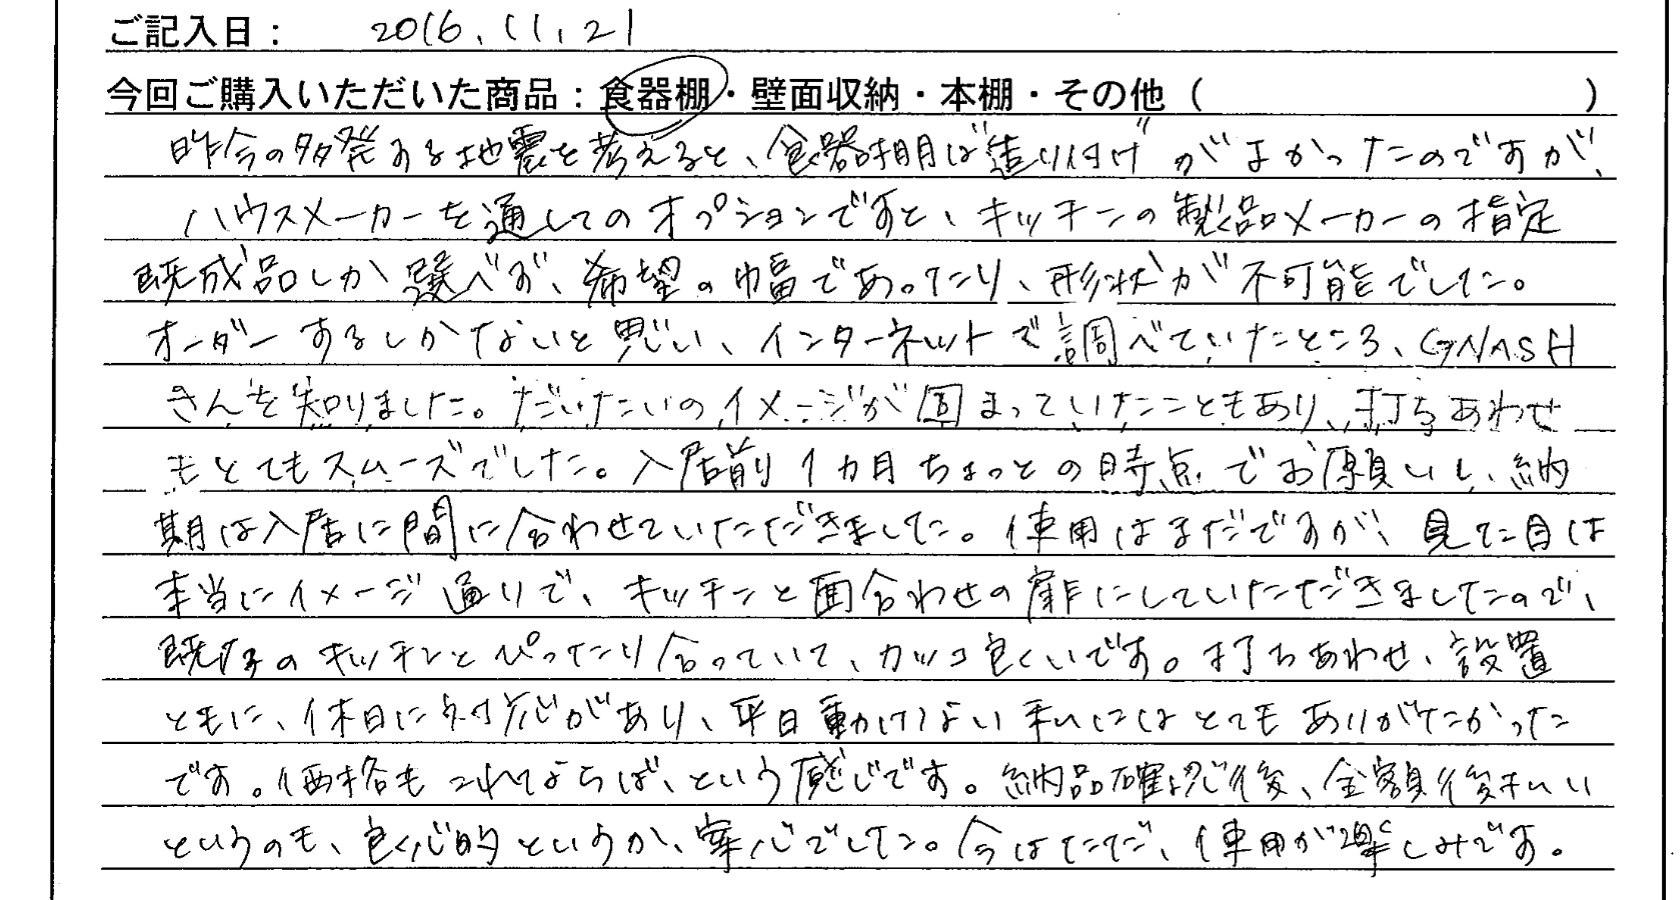 ご記入日： 2016.11.21
今回ご購入いただいた商品：食器棚・壁面収納・本棚・その他（　　　）
昨今の多発する地震を考えると、食器棚は"造り付け"がよかったのですが、
ハウスメーカーを通してのオプションですと、キッチンの製品メーカーの指定
既成品しか選べず、希望の幅であったり、形状が不可能でした。
オーダーするしかないと思い、インターネットで調べていたところ、GNASH
さんを知りました。だいたいのイメージが固まっていたこともあり、打ちあわせ
もとてもスムーズでした。入居前1カ月ちょっとの時点でお願いし、納
期は入居に間に合わせていただきました。使用はまだですが、見た目は
本当にイメージ通りで、キッチンと面合わせの扉にしていただきましたので、
既存のキッチンとぴったり合っていて、カッコ良いです。打ちあわせ、設置
ともに、休日に対応があり、平日動けない私にはとてもありがたかった
です。価格もこれならば、という感じです。納品確認後、全額後払い
というのも、良心的というか、安心でした。今はただ、使用が楽しみです。